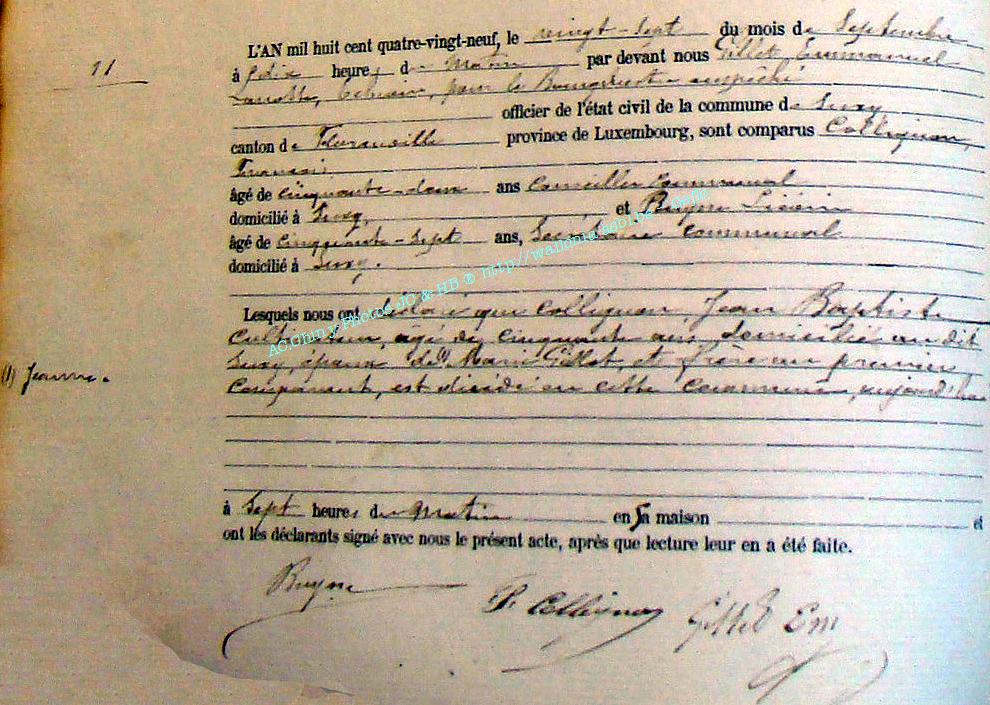 11
L'AN mil huit cent quatre-vingt-neuf, le vingt-sept du mois de Septembre
à dix heures de Matin par devant nous Gillet Emmanuel
Echevin, pour le Bourgmestre empêché
officier de l'état civil de la commune de Suxy
canton de Florenville province de Luxembourg, sont comparus Collignon,
âgé de cinquante-deux ans Conseiller communal
domicilié à Suxy, et Ruyne
âgé de cinquante-sept ans, Secrétaire communal
domicilié à Suxy.
Lesquels nous ont déclaré que Collignon, Jean Baptiste
Cultivateur, âgé de cinquante ans, domicilié au dit
Suxy, époux de (1) Marie Gillet, et frère au premier
Comparant, est décédé en cette commune, aujourd'hui
(1) Jeanne.
à Sept heures du Matin en sa maison et
ont les déclarants signé avec nous le présent acte, après que lecture leur en a été faite.
Ruyne
F. Collignon
Gillet Em
AC Chiny Photos JO & HB © http://wallonia